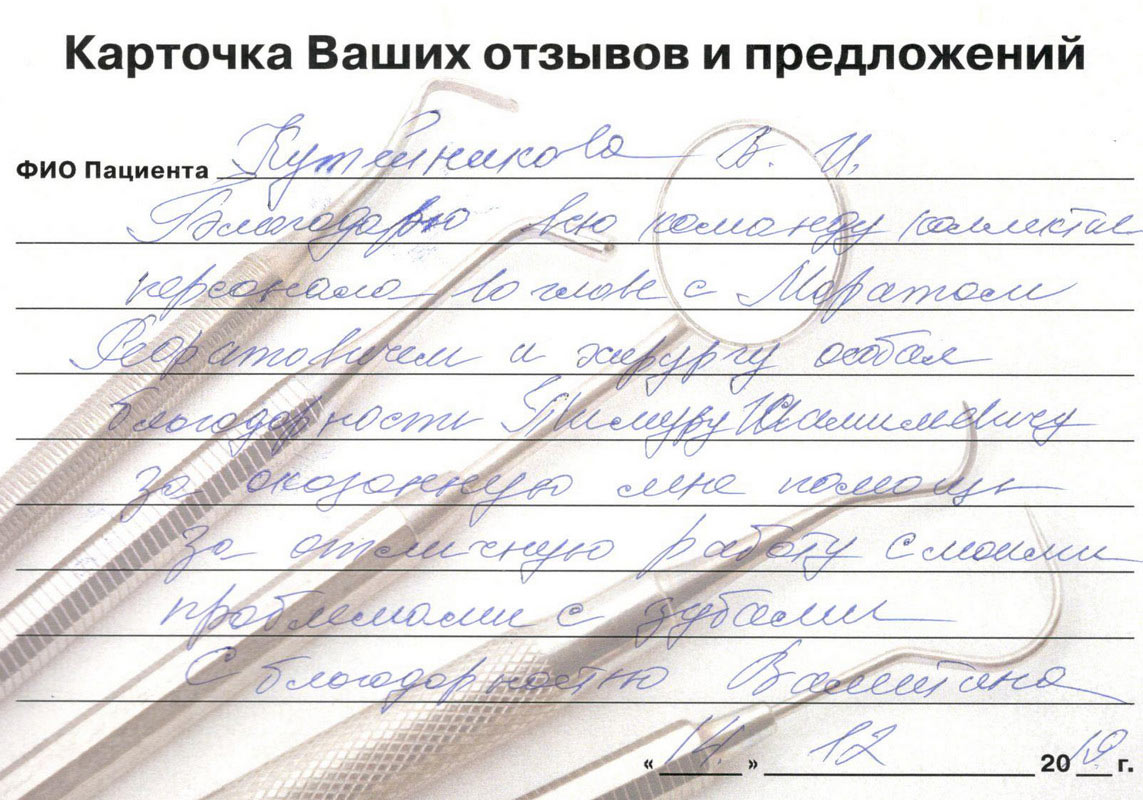 Карточка Ваших отзывов и предложений
ФИО Пациента Кутейникова В. И.
Благодарю всю команду коллектив
персонала во главе с Маратом
Маратовичем и хирургу особая
благодарность Тимуру
за оказанную мне помощь
за отличную работу с моими
проблемами с зубами
С благодарностью Валентина
« 14. » 12 2019 г.